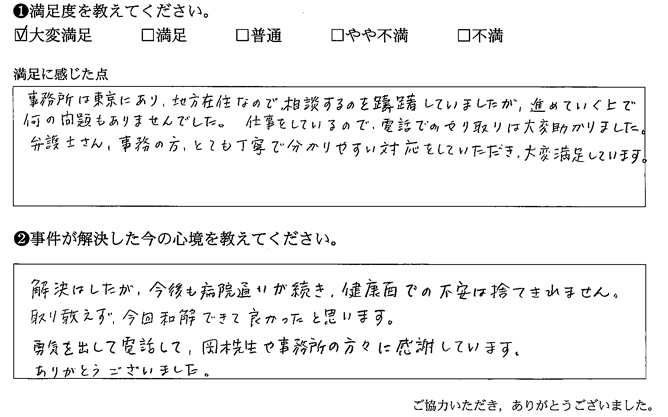 ❶満足度を教えてください。
☑大変満足 □満足 □普通 □やや不満 □不満
満足に感じた点
事務所は東京にあり、地方在住なので、相談するのを躊躇していましたが、進めていく上で
何の問題もありませんでした。 仕事をしているので、電話でのやり取りは大変助かりました。
弁護士さん、事務の方、とても丁寧で分かりやすい対応をしていただき、大変満足しています。
❷事件が解決した今の心境を教えてください。
解決はしたが、今後も病院通いが続き、健康面での不安は捨てきれません。
取り敢えず、今回和解できて良かったと思います。
勇気を出して電話して、岡本先生や事務所の方々に感謝しています。
ありがとうございました。
ご協力いただき，ありがとうございました。